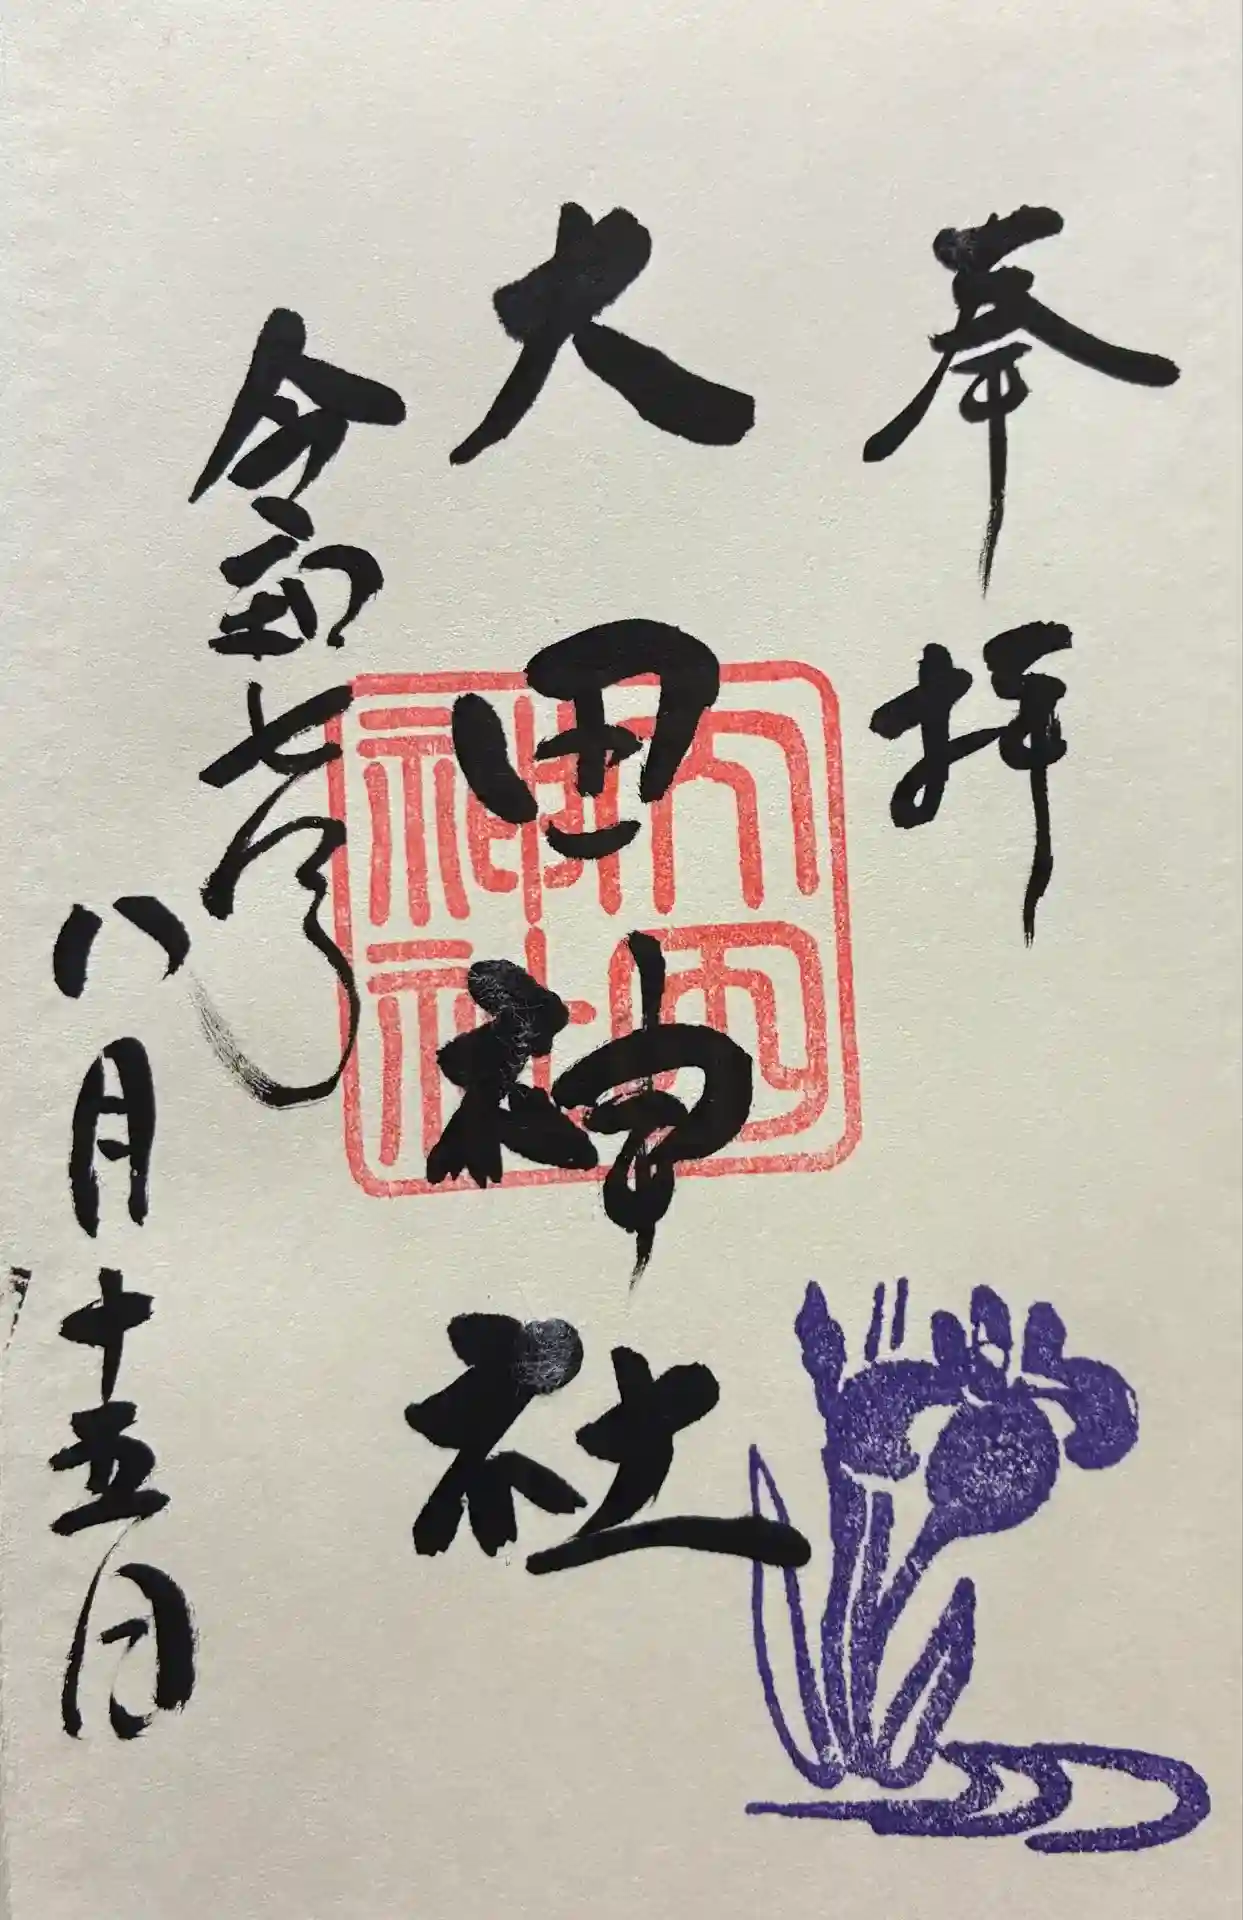 奉拝
大田神社
大田神社
令和七年
八月十五日